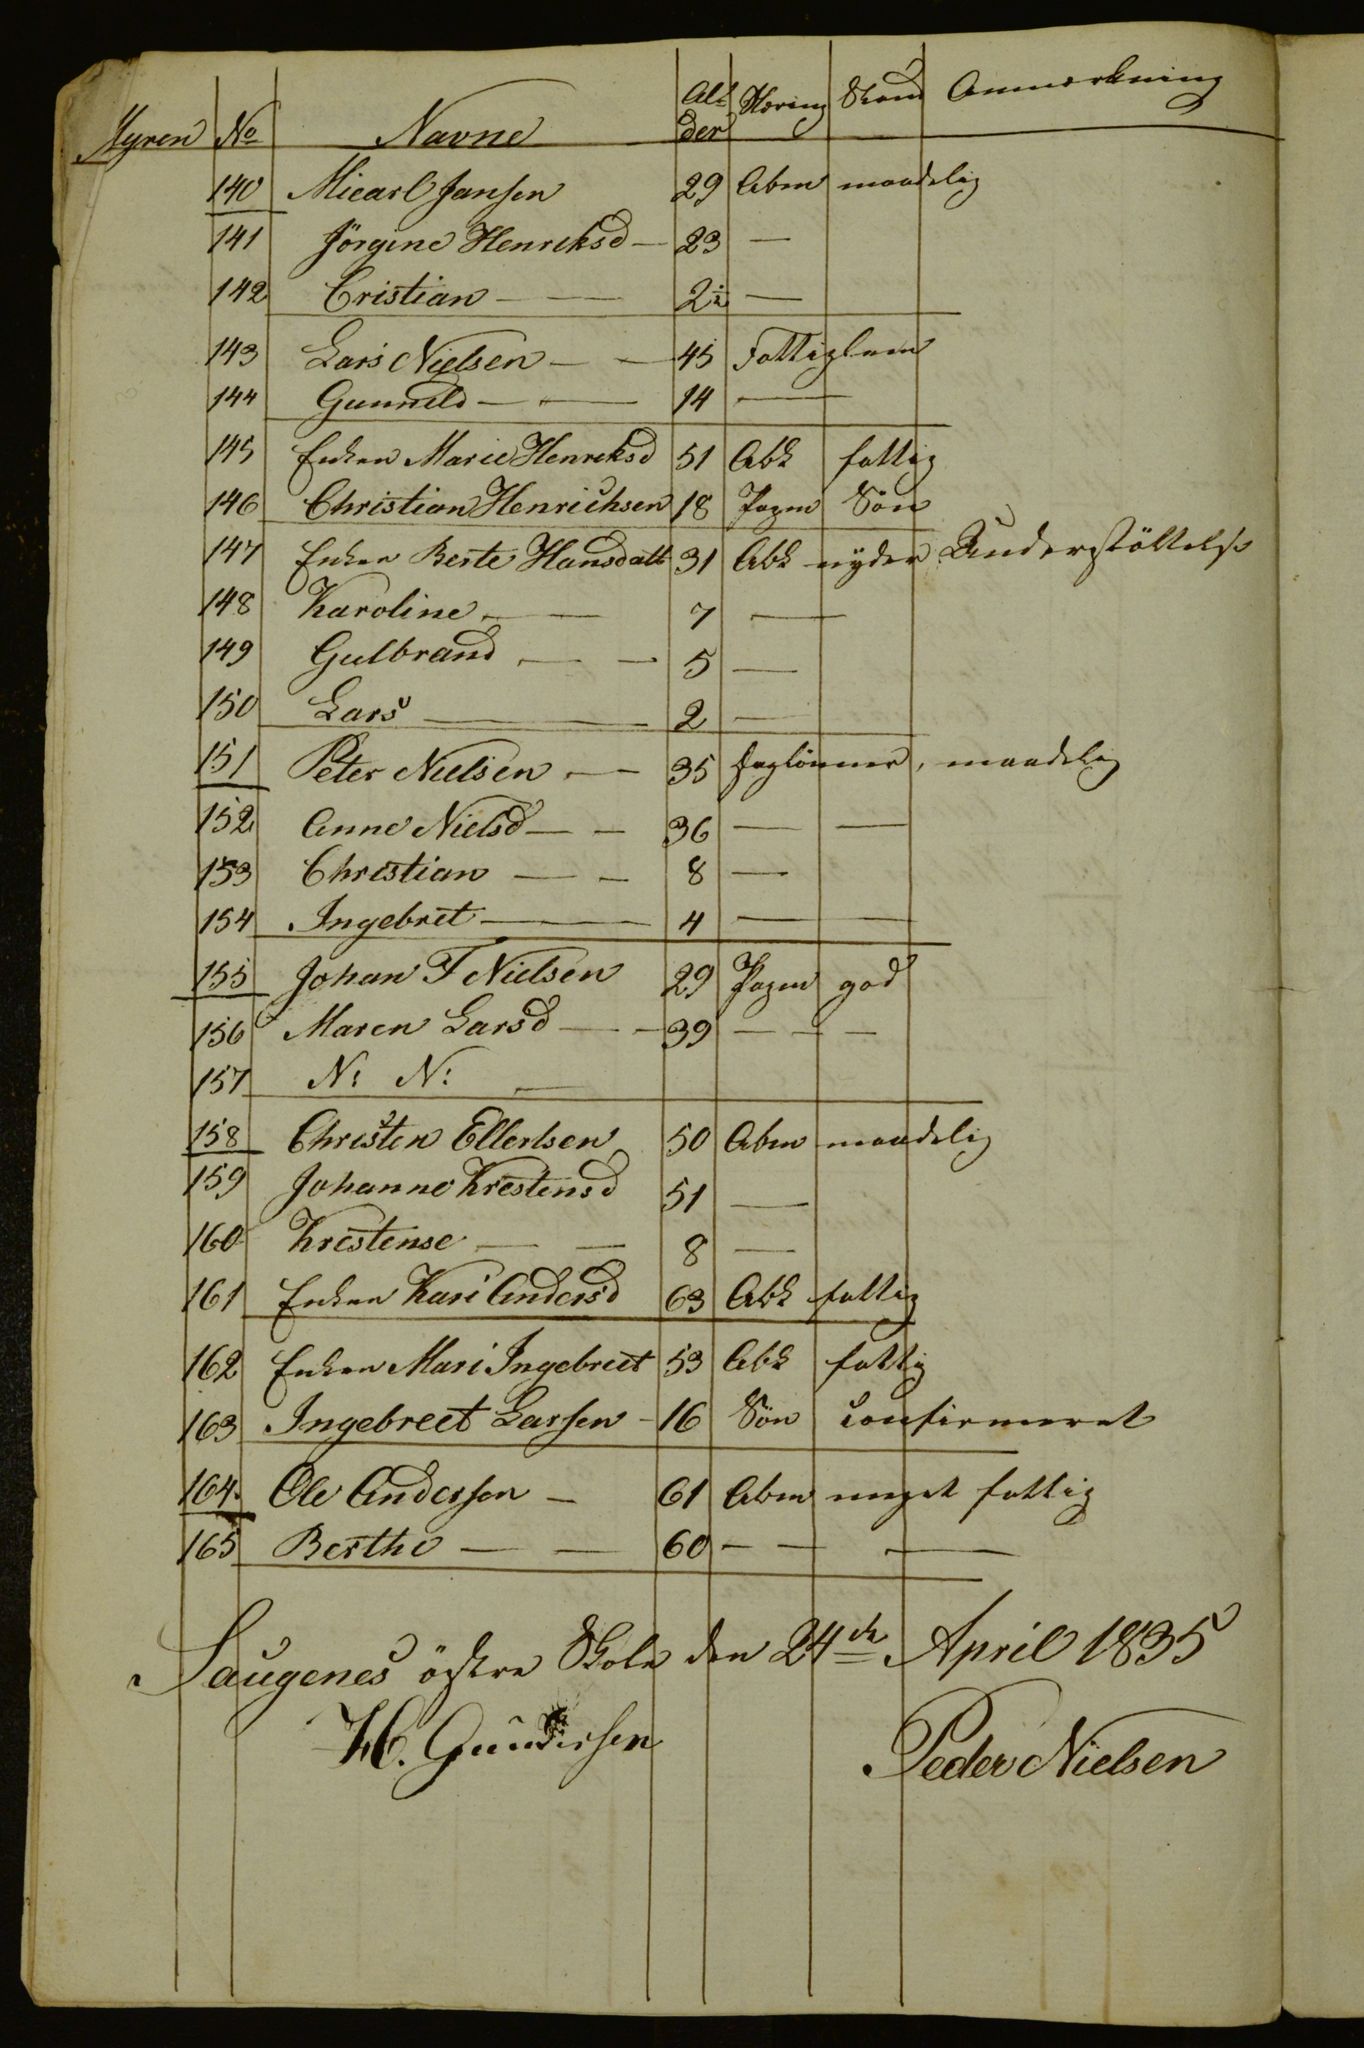 Myren No Navne Alder Næring Stand Anmærkning
140 Micael Jansen 29 Abm maadelig
141 Jörgine Henriksd — 23 —
142 Cristian — — 2½ —
143 Lars Nielsen — — 45 Fattiglem
144 Gunnild — — 14 —
145 Enken Marie Henriksd 51 Abk fattig
146 Christian Henrichsen 18 Jagm Sön
147 Enken Berte Hansdatt 31 Abk nyder Understöttelse
148 Karoline — — 7 —
149 Gulbrand — — 5 —
150 Lars — 2 —
151 Peter Nielsen — 35 Daglönner, maadelig
152 Anne Nielsd — — 36 — —
153 Christian — — 8 —
154 Ingebret — 4 — —
155 Johan F Nielsen 29 Jagm god
156 Maren Larsd — — 39 — — —
157 N: N: —
158 Christen Ellertsen 50 Abm maadelig
159 Johanne Krestensd 51 —
160 Krestense — — 8 —
161 Enken Kari Andersd 63 Abk fattig
162 Enken Mari Ingebret 53 Abk fattig
163 Ingebreet Larsen — 16 Sön confirmeret
164. Ole Andersen — 61 Abm meget fattig
165 Berthe — — 60 — — —
Saugenes östre Skole den 24de April 1835
H. Gundersen Peder Nielsen